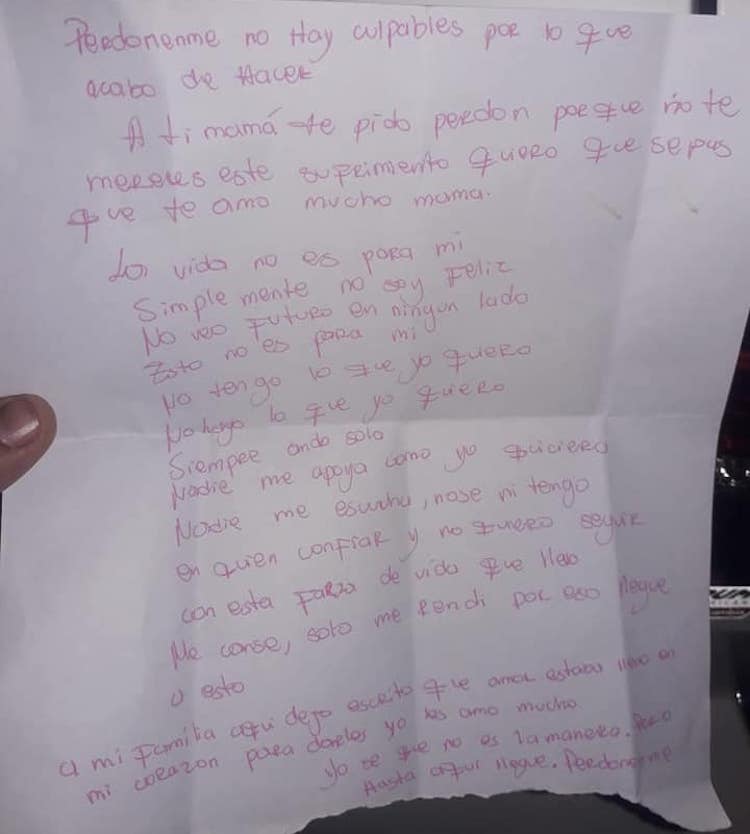 Perdonenme no Hay culpables por lo que
acabo de Hacer
A ti mamá te pido perdon porque no te
mereses este suprimiento quero que sepas
que te amo mucho mama.
La vida no es para mi
Simplemente no soy Feliz
No veo Futuro en ningun lado
Esto no es para mi
No tengo lo que yo quero
No hago lo que yo quiero
Siempre ando solo
Nadie me apoya como yo quiciera
Nadie me escucha, nose ni tengo
en quien confiar y no quero seguir
con esta Farza de vida que llevo
Me canse, solo me Rendi por eso llegue
a esto
a mi familia aqui dejo escrito que amor estaba lleno en
mi corazon para darles yo las amo mucho
yo se que no es la manera. Pero
Hasta aqui llegue. Perdonenme